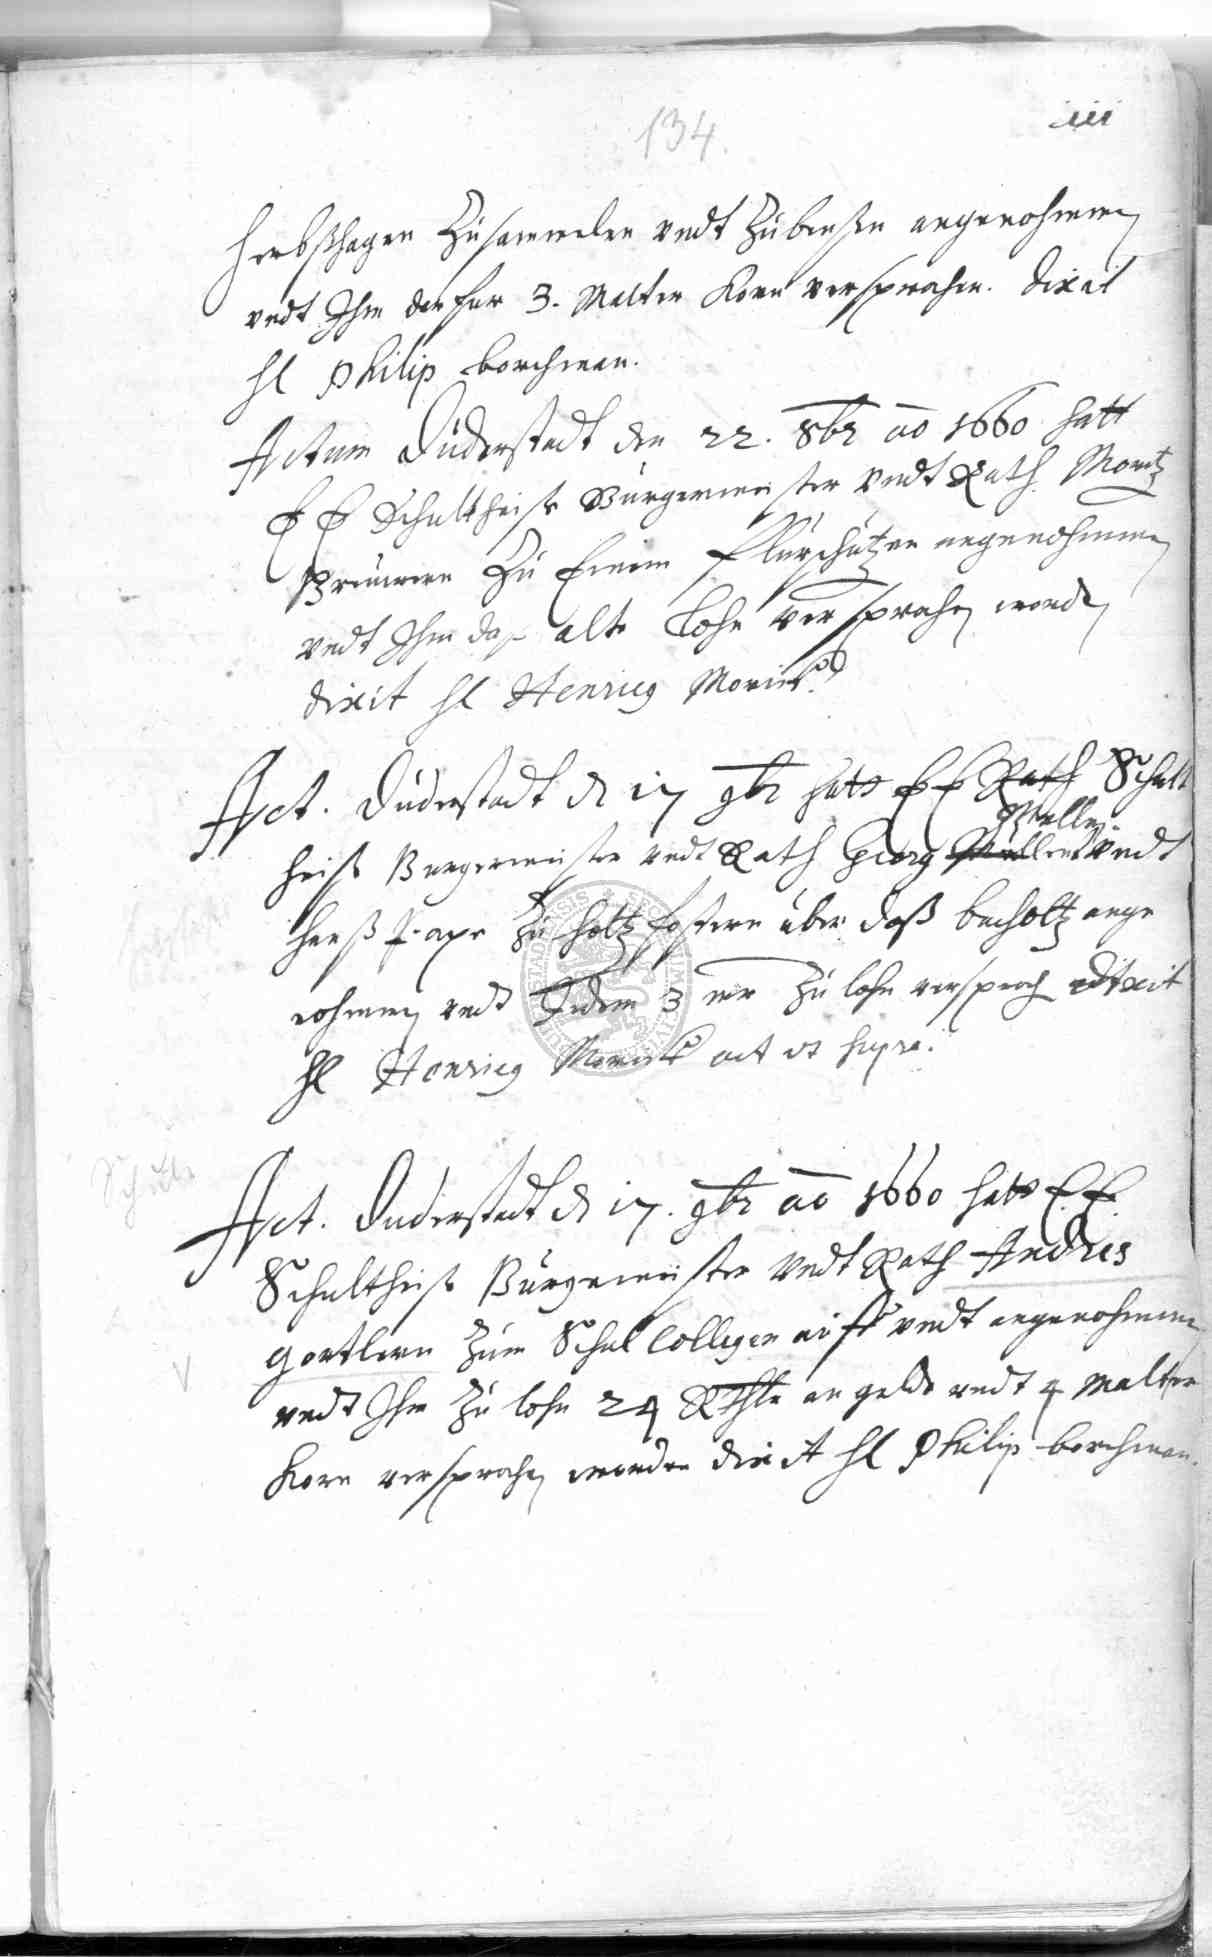 134.
iii
Herbsthagen Zusammelen undt Zubinden angenohmen
undt Ihm darfur 3. Malter Korn versprochen. dixit
hl Philip borchman.
Actum Duderstadt den 22. 8br ao 1660 hatt
E E Schultheiß Bürgermeister undt Rath Moritz
zu Einem Flurschützen angenohmen
undt Ihm daß alte Lohn versprochen worden
dixit hl Henricg Morick
Act. Duderstadt d 17 9br hatt E E Rath Schult
Muller
heiß Burgermeister undt Rath Georg Mullern undt
Hanß Pape zu Holtz forstern über daß buchholtz ange
nohmen undt Jedem 3 mr zu lohn versproch dixit
hl Henricg Morick act ut supra.
Schule
Act. Duderstadt d 17. 9br ao 1660 hatt E. E.
Schultheiß Bürgermeister undt Rath Andres
gortlern Zum Schul Collegen auff undt angenohmen
undt Ihm zu lohn 24 Rthlr an gelde undt 4 Malter
Korn versprochen worden dixit hl Philip borchman.